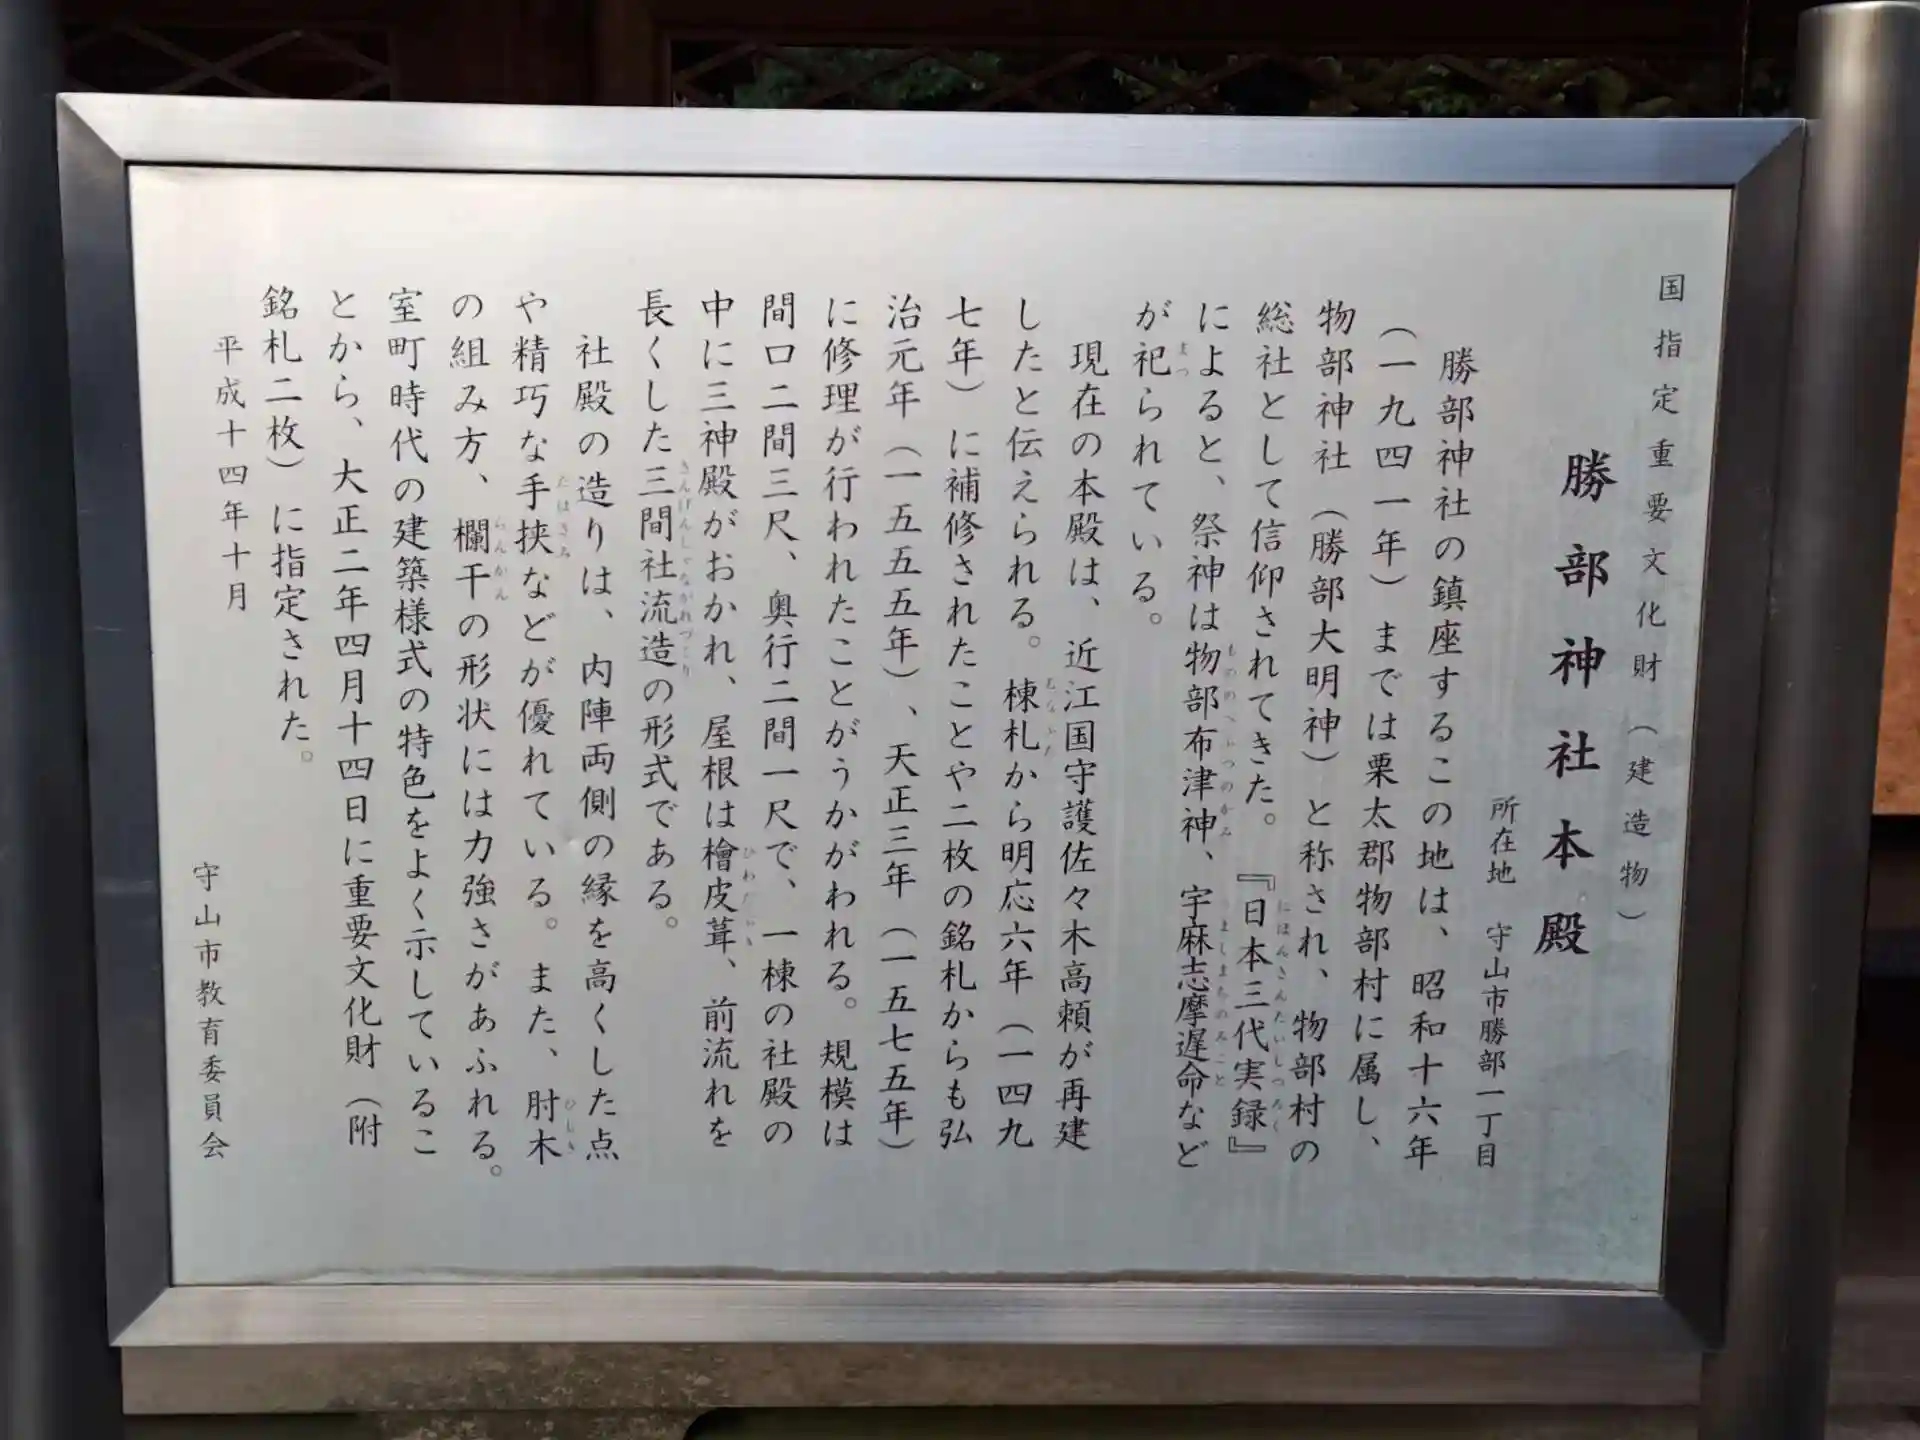 国指定重要文化財（建造物）
勝部神社本殿
所在地　守山市勝部一丁目
勝部神社の鎮座するこの地は、昭和十六年
（一九四一年）までは栗太郡物部村に属し、
物部神社（勝部大明神）と称され、物部村の
総社として信仰されてきた。『日本三代実録』
によると、祭神は物部布津神、宇麻志摩遅命など
が祀られている。
現在の本殿は、近江国守護佐々木高頼が再建
したと伝えられる。棟札から明応六年（一四九
七年）に補修されたことや二枚の銘札からも弘
治元年（一五五五年）、天正三年（一五七五年）
に修理が行われたことがうかがわれる。規模は
間口二間三尺、奥行二間一尺で、一棟の社殿の
中に三神殿がおかれ、屋根は檜皮葺、前流れを
長くした三間社流造の形式である。
社殿の造りは、内陣両側の縁を高くした点
や精巧な手挟などが優れている。また、肘木
の組み方、欄干の形状には力強さがあふれる。
室町時代の建築様式の特色をよく示しているこ
とから、大正二年四月十四日に重要文化財（附
銘札二枚）に指定された。
平成十四年十月
守山市教育委員会